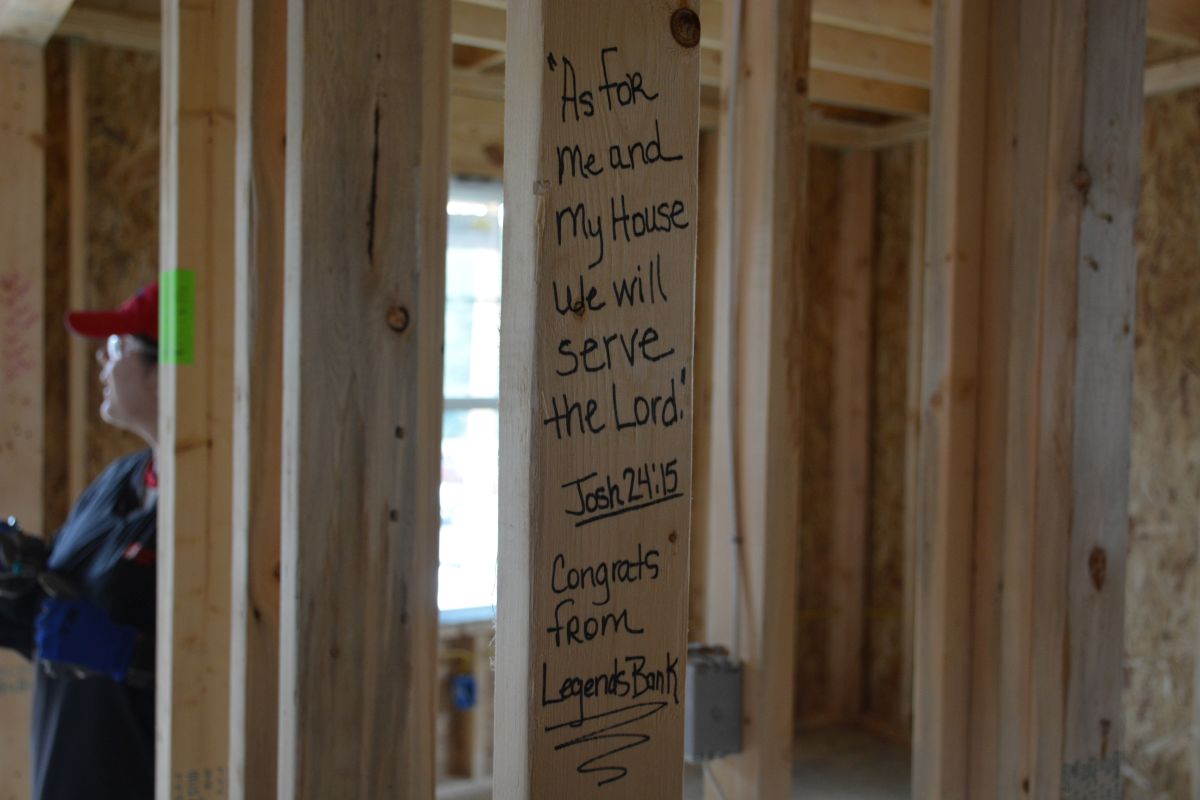 "As For
Me and
My House
We will
serve
the Lord."
Josh 24:15
Congrats
from
Legends Bank